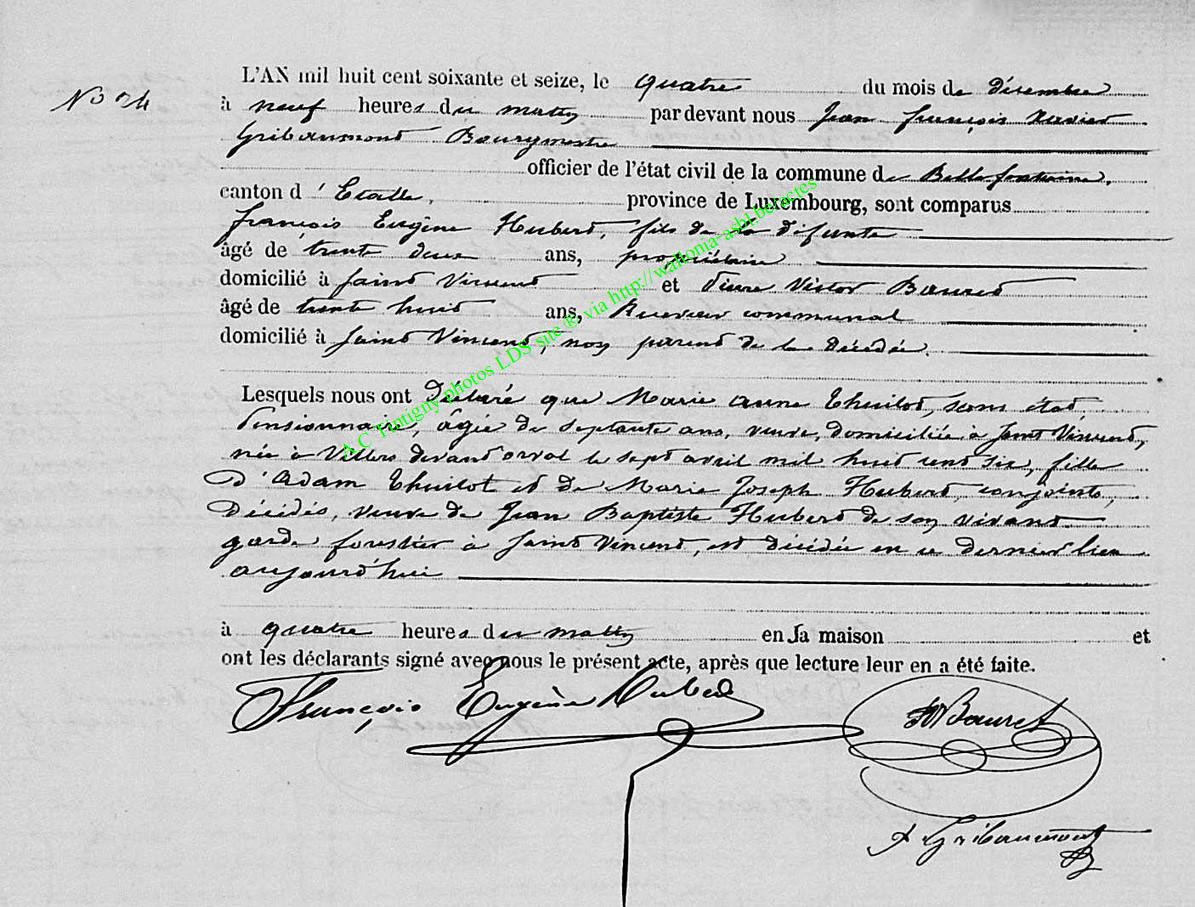 L'AN mil huit cent soixante et seize, le quatre du mois de décembre
No 24
à neuf heures du matin par devant nous Jean François Xavier
Gribaumont Bourgmestre
officier de l'état civil de la commune de Bellefontaine,
canton d'Etalle, province de Luxembourg, sont comparus
François Eugène Hubert, fils de la défunte
âgé de trente deux ans, propriétaire
domicilié à Saint Vincent et Pierre Victor Bauret
âgé de trente huit ans, Receveur communal
domicilié à Saint Vincent, non parent de la décédée.
A.C Tintigny photos LDS site ® via http://wallonia-asbl.be/actes
Lesquels nous ont déclaré que Marie anne Thuilot, sans état,
Pensionnaire, âgée de septante ans, veuve, domiciliée à Saint Vincent,
née à Villers devant orval le sept avril mil huit cent six, fille
d'Adam Thuilot et de Marie Joseph Hubert, conjoints,
décédés, veuve de Jean Baptiste Hubert de son vivant
garde forestier à Saint Vincent, est décédée en ce dernier lieu
aujourd'hui
à quatre heures du matin en sa maison et
ont les déclarants signé avec nous le présent acte, après que lecture leur en a été faite.
François Eugène Hubert
Bauret
Gribaumont